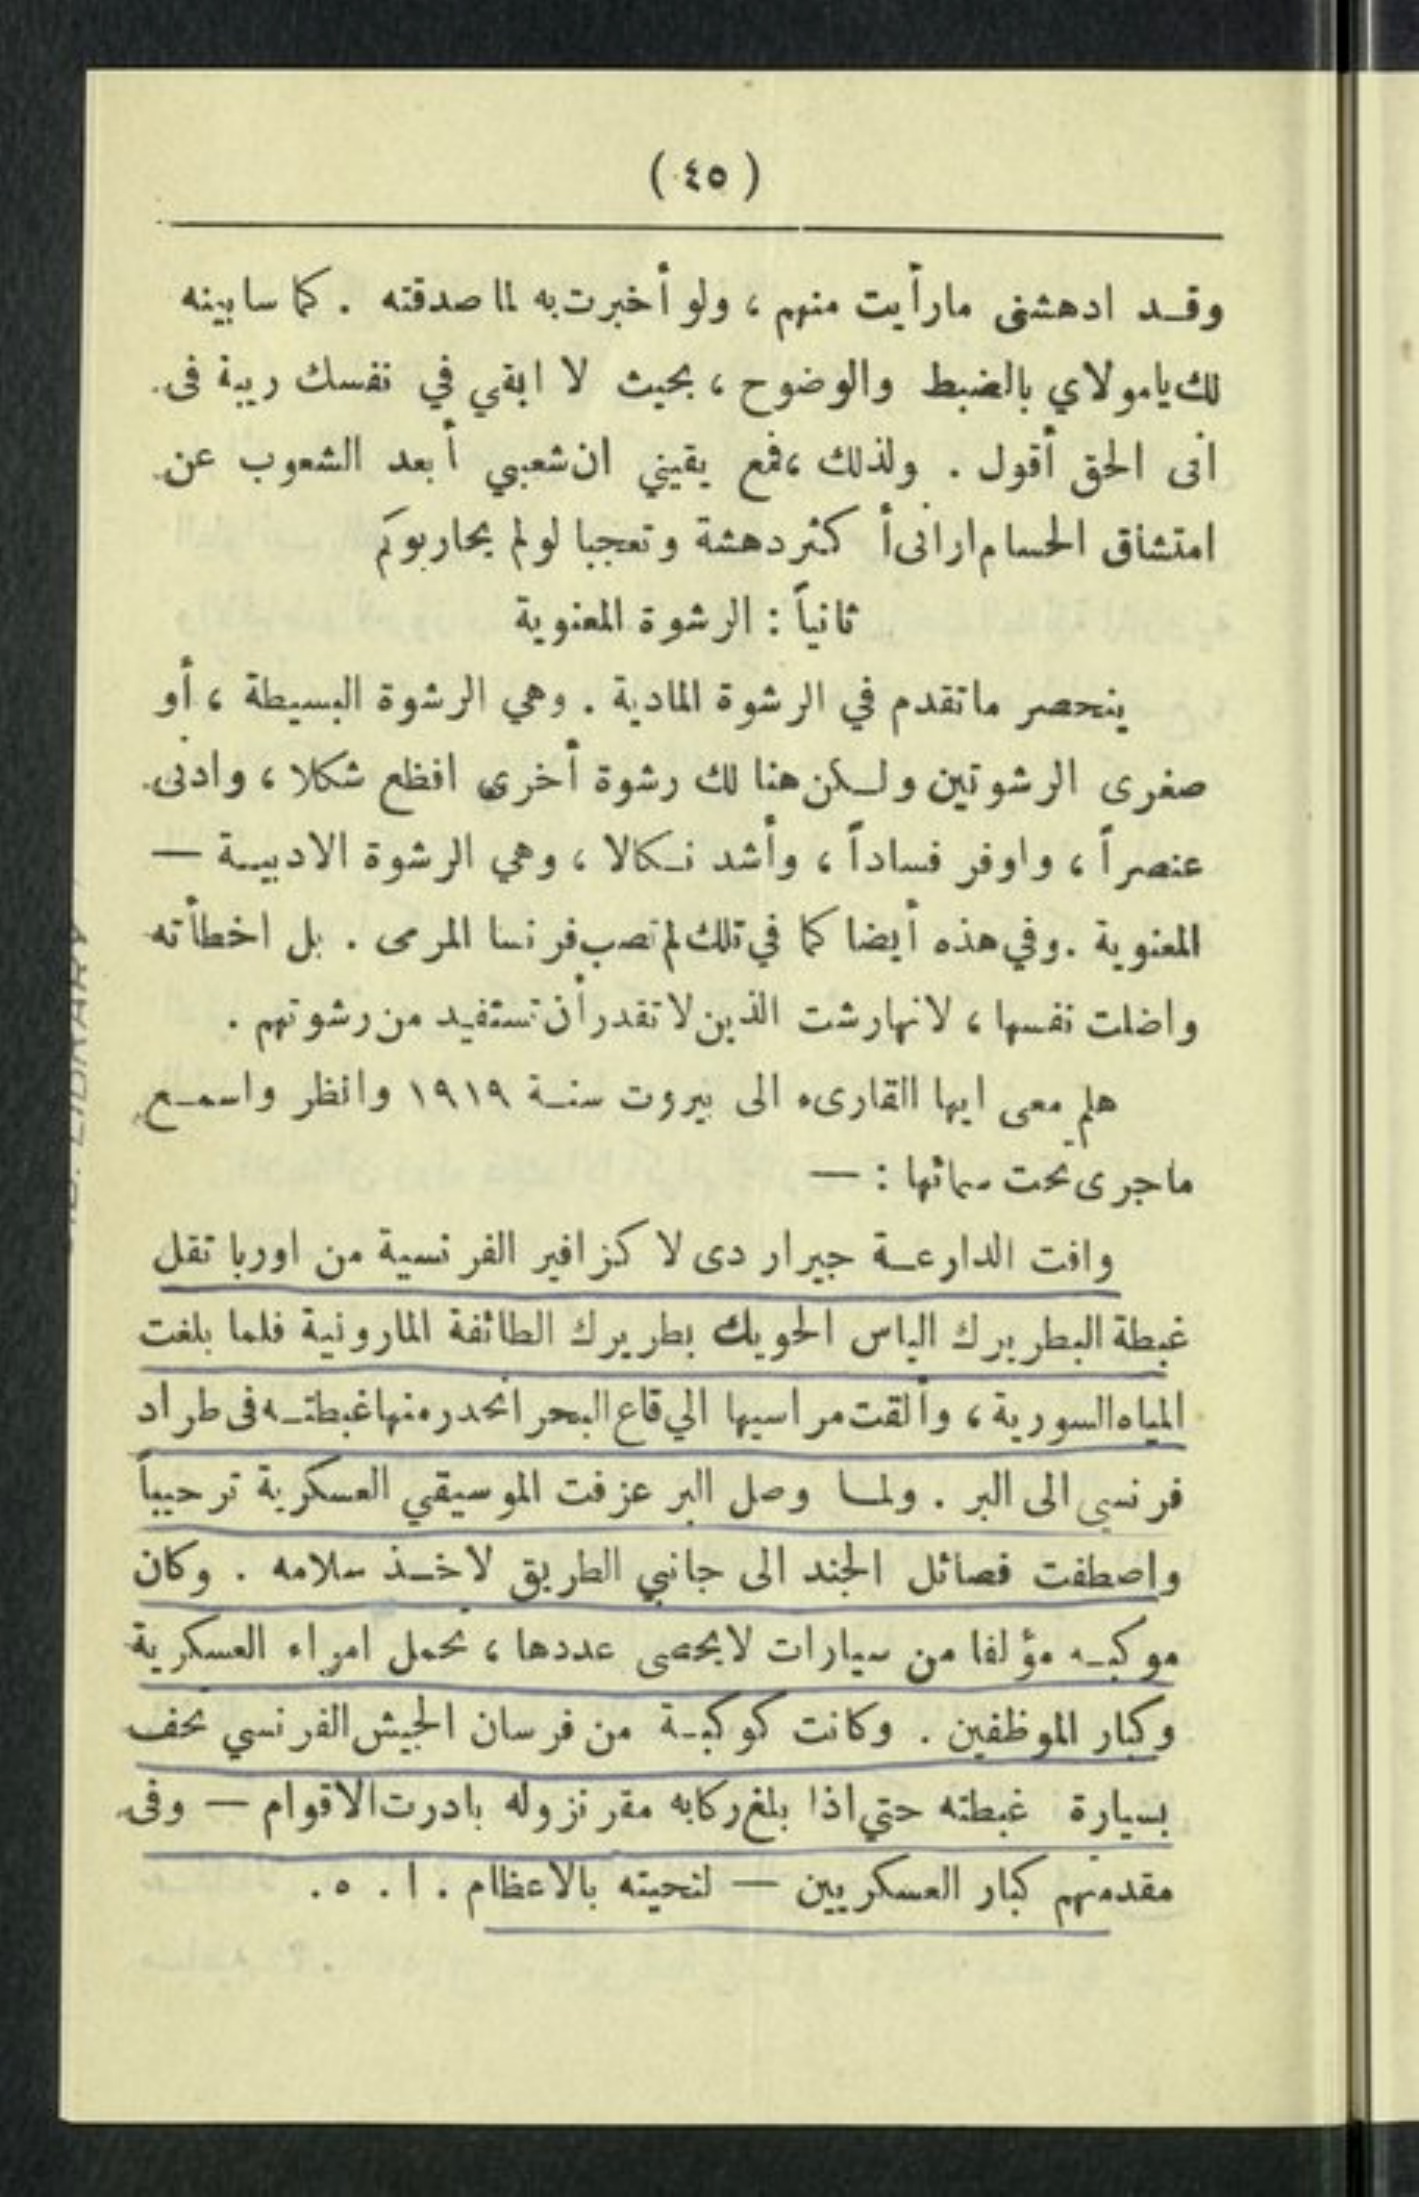 ( ٤٥ )
وقد ادهشنى مارأيت منهم ، ولو أخبرت به لما صدقته . كما سابينه
لك يامولاي بالضبط والوضوح ، بحيث لا ابقي في نفسك ريبة فى
انى الحق أقول . ولذلك ، فمع يقيني ان شعبي أبعد الشعوب عن
امتشاق الحسام ارانى أكثر دهشة وتعجبا لو لم يحاربوكم
ثانياً : الرشوة المعنوية
ينحصر ماتقدم في الرشوة المادية . وهي الرشوة البسيطة ، أو
صغرى الرشوتين ولكن هنا لك رشوة أخرى افظع شكلا ، وادنى
عنصراً ، واوفر فساداً ، وأشد نكالا ، وهي الرشوة الادبية —
المعنوية . وفي هذه أيضا كما في تلك لم تصب فرنسا المرمى . بل اخطأته
واضلت نفسها ، لانها رشت الذين لا تقدر أن تستفيد من رشوتهم .
هلم معى ايها القارىء الى بيروت سنة ١٩١٩ وانظر واسمع
ماجرى تحت سمائها : —
وافت الدارعة جيرار دى لا كزافير الفرنسية من اوربا تقل
غبطة البطريرك الياس الحويك بطريرك الطائفة المارونية فلما بلغت
المياه السورية ، وألقت مراسيها الي قاع البحر انحدر منها غبطته فى طراد
فرنسي الى البر . ولما وصل البر عزفت الموسيقي العسكرية ترحيباً
واصطفت فصائل الجند الى جانبي الطريق لاخذ سلامه . وكان
موكبه مؤلفا من سيارات لا يحصى عددها ، تحمل امراء العسكرية
وكبار الموظفين . وكانت كوكبة من فرسان الجيش الفرنسي تحف
بسيارة غبطته حتي اذا بلغ ركابه مقر نزوله بادرت الاقوام — وفى
مقدمتهم كبار العسكريين — لتحيته بالاعظام . ا . ه .